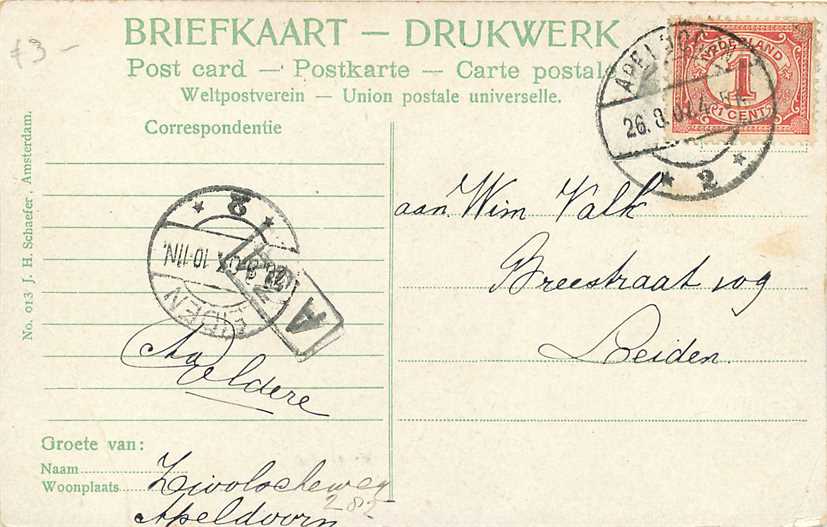 f3 -
BRIEFKAART — DRUKWERK
Post card — Postkarte — Carte postale
Weltpostverein — Union postale universelle.
Correspondentie
NEDERLAND
1
1 CENT
APELDOORN
26.8.07.4
2
aan Wim Valk
Breestraat 109
Leiden.
LEIDEN
10-11N.
2
A
Groete van:
Naam
Woonplaats
Zwolscheweg
282
Apeldoorn
No. 013 J. H. Schaefer, Amsterdam.